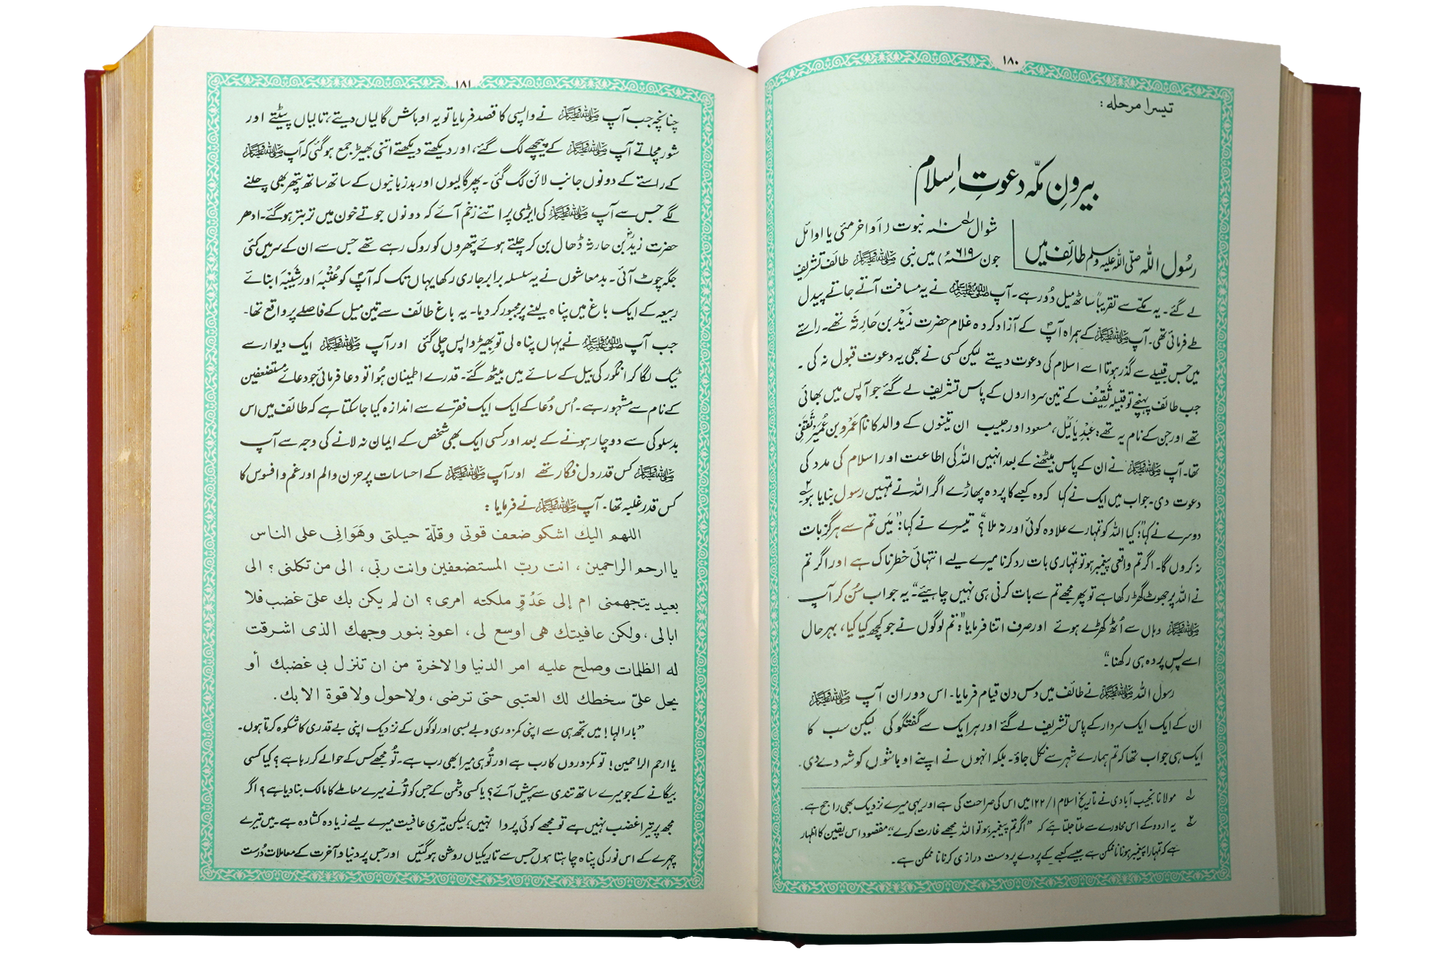 ۱۸۰
تیسرا مرحلہ:
بیرونِ مکّہ دعوتِ اسلام
رسُول اللہ صلی اللہ علیہ وسلم طائف میں
شوال سنہ ۱۰ نبوت (اواخر مئی یا اوائل
جون ۶۱۹ء) میں نبی ﷺ طائف تشریف
لے گئے۔ یہ مکّے سے تقریباً ساٹھ میل دُور ہے۔ آپ ﷺ نے یہ مسافت آتے جاتے پیدل
طے فرمائی تھی۔ آپ ﷺ کے ہمراہ آپؐ کے آزاد کردہ غلام حضرت زیدؓ بن حارثہ تھے۔ راستے
میں جس قبیلے سے گذر ہوتا اسے اسلام کی دعوت دیتے لیکن کسی نے بھی یہ دعوت قبول نہ کی۔
جب طائف پہنچے تو قبیلہ ثقیف کے تین سرداروں کے پاس تشریف لے گئے جو آپس میں بھائی
تھے اور جن کے نام یہ تھے: عبدیالیل، مسعود اور حبیب ان تینوں کے والد کا نام عمرو بن عمیر ثقفی
تھا۔ آپ ﷺ نے ان کے پاس بیٹھنے کے بعد انہیں اللہ کی اطاعت اور اسلام کی مدد کی
دعوت دی۔ جواب میں ایک نے کہا کہ وہ کعبے کا پردہ پھاڑے اگر اللہ نے تمہیں رسول بنایا ہو۔
دوسرے نے کہا: کیا اللہ کو تمہارے علاوہ کوئی اور نہ ملا؟ تیسرے نے کہا: "میں تم سے ہرگز بات
نہ کروں گا۔ اگر تم واقعی پیغمبر ہو تو تمہاری بات رد کرنا میرے لیے انتہائی خطرناک ہے اور اگر تم
نے اللہ پر جھوٹ گھڑ رکھا ہے تو پھر مجھے تم سے بات کرنی ہی نہیں چاہیئے۔" یہ جواب سُن کر آپ
ﷺ وہاں سے اُٹھ کھڑے ہوئے اور صرف اتنا فرمایا: "تم لوگوں نے جو کچھ کیا کیا، بہرحال
اسے پس پردہ ہی رکھنا۔"
رسول اللہ ﷺ نے طائف میں دس دن قیام فرمایا۔ اس دوران آپ ﷺ
ان کے ایک ایک سردار کے پاس تشریف لے گئے اور ہر ایک سے گفتگو کی لیکن سب کا
ایک ہی جواب تھا کہ تم ہمارے شہر سے نکل جاؤ۔ بلکہ انہوں نے اپنے اوباشوں کو شہ دے دی۔
۱ مولانا نجیب آبادی نے تاریخ اسلام ۱/۱۲۲ میں اس کی صراحت کی ہے اور یہی میرے نزدیک بھی راجح ہے۔
۲ یہ اردو کے اس محاورے سے ملتا جلتا ہے کہ "اگر تم پیغمبر ہو تو اللہ مجھے غارت کرے" مقصود اس یقین کا اظہار
ہے کہ تمہارا پیغمبر ہونا ناممکن ہے جیسے کعبے کے پردے پر دست درازی کرنا ناممکن ہے۔
۱۸۱
چنانچہ جب آپ ﷺ نے واپسی کا قصد فرمایا تو یہ اوباش گالیاں دیتے، تالیاں پیٹتے اور
شور مچاتے آپ ﷺ کے پیچھے لگ گئے، اور دیکھتے دیکھتے اتنی بھیڑ جمع ہو گئی کہ آپ ﷺ
کے راستے کے دونوں جانب لائن لگ گئی۔ پھر گالیوں اور بدزبانیوں کے ساتھ ساتھ پتھر بھی چلنے
لگے جس سے آپ ﷺ کی ایڑی پر اتنے زخم آئے کہ دونوں جوتے خون میں تر بتر ہو گئے۔ ادھر
حضرت زیدؓ بن حارثہ ڈھال بن کر چلتے ہوئے پتھروں کو روک رہے تھے جس سے ان کے سر میں کئی
جگہ چوٹ آئی۔ بدمعاشوں نے یہ سلسلہ برابر جاری رکھا یہاں تک کہ آپؐ کو عُتْبَہ اور شَیْبَہ ابنائے
ربیعہ کے ایک باغ میں پناہ لینے پر مجبور کر دیا۔ یہ باغ طائف سے تین میل کے فاصلے پر واقع تھا۔
جب آپ ﷺ نے یہاں پناہ لی تو بھیڑ واپس چلی گئی اور آپ ﷺ ایک دیوار سے
ٹیک لگا کر انگور کی بیل کے سائے میں بیٹھ گئے۔ قدرے اطمینان ہُوا تو دعا فرمائی جو دعائے مستضعفین
کے نام سے مشہور ہے۔ اُس دُعا کے ایک ایک فقرے سے اندازہ کیا جا سکتا ہے کہ طائف میں اس
بدسلوکی سے دوچار ہونے کے بعد اور کسی ایک بھی شخص کے ایمان نہ لانے کی وجہ سے آپ
ﷺ کس قدر دل فگار تھے اور آپ ﷺ کے احساسات پر حزن و الم اور غم و افسوس کا
کس قدر غلبہ تھا۔ آپ ﷺ نے فرمایا:
اللهم اليك اشكو ضعف قوتي وقلّة حيلتي وهَواني على الناس
يا ارحم الراحمين، انت ربّ المستضعفين وانت ربّي، الى من تكلني؟ الى
بعيد يتجهمني ام إلى عَدُوٍّ ملكته امري؟ ان لم يكن بك عليّ غضب فلا
ابالي، ولكن عافيتك هي اوسع لي، اعوذ بنور وجهك الذي اشرقت
له الظلمات وصلح عليه امر الدنيا والاخرة من ان تنزل بي غضبك أو
يحل عليّ سخطك لك العتبى حتى ترضى، ولا حول ولا قوة الا بك.
"بار الٰہا! میں تجھ ہی سے اپنی کمزوری و بے بسی اور لوگوں کے نزدیک اپنی بے قدری کا شکوہ کرتا ہوں۔
یا ارحم الراحمین! تو کمزوروں کا رب ہے اور تُو ہی میرا بھی رب ہے۔ تُو مجھے کس کے حوالے کر رہا ہے؟ کیا کسی
بیگانے کے جو میرے ساتھ تندی سے پیش آئے؟ یا کسی دشمن کے جس کو تُو نے میرے معاملے کا مالک بنا دیا ہے؟ اگر
مجھ پر تیرا غضب نہیں ہے تو مجھے کوئی پروا نہیں؛ لیکن تیری عافیت میرے لیے زیادہ کشادہ ہے۔ میں تیرے
چہرے کے اس نور کی پناہ چاہتا ہوں جس سے تاریکیاں روشن ہو گئیں اور جس پر دنیا و آخرت کے معاملات دُرست